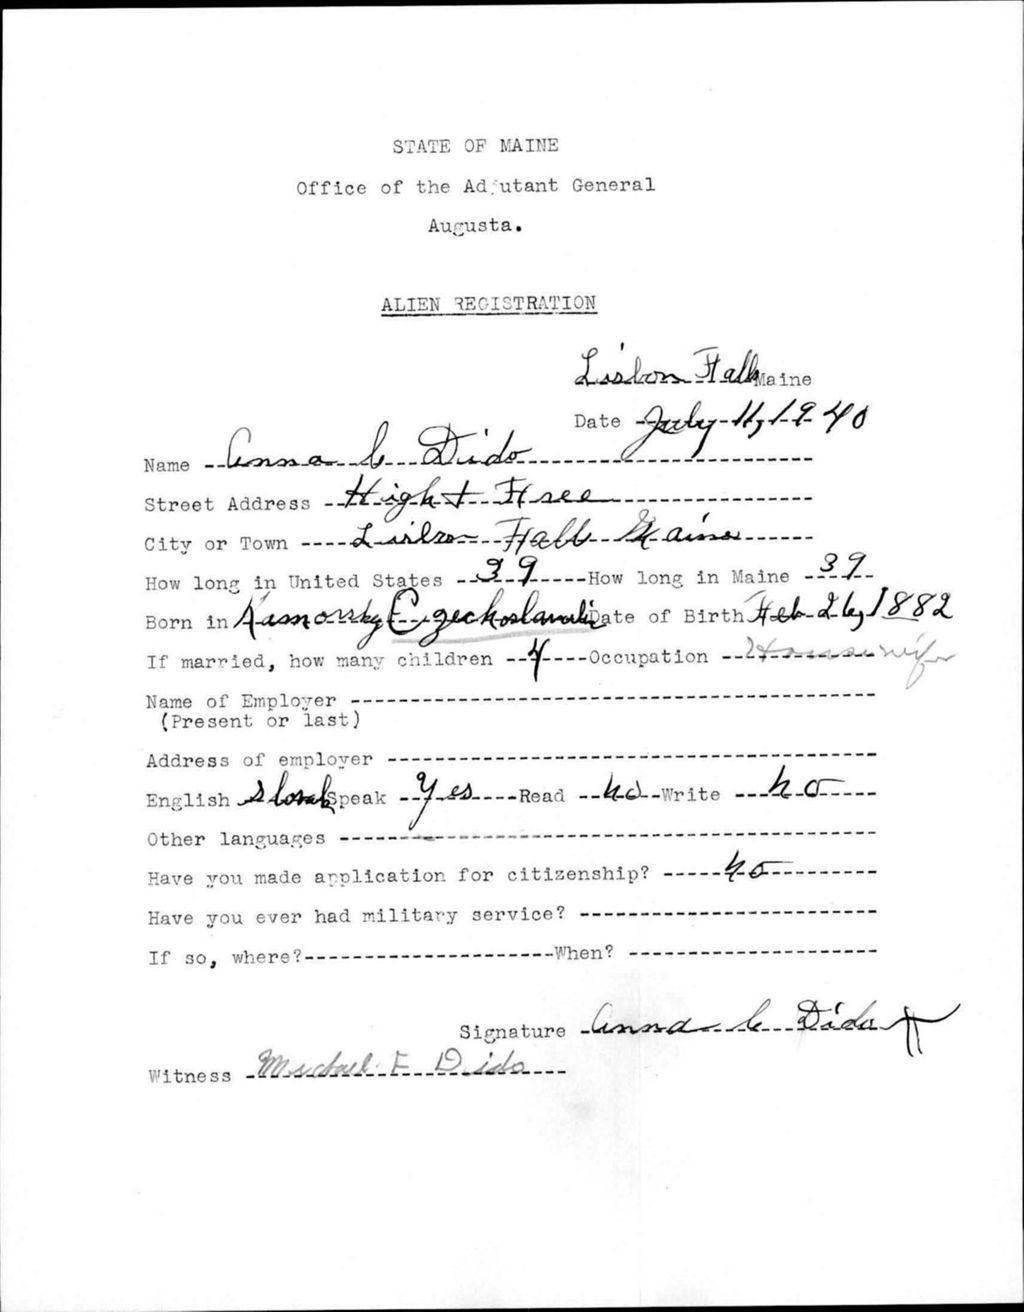 STATE OF MAINE
Office of the Adjutant General
Augusta.
ALIEN REGISTRATION
Lisbon Falls Maine
Date July 11, 1940
Name Anna C Dido
Street Address High
City or Town Lisbon Falls Maine
How long in United States 39 How long in Maine 39
Born in Czechoslovakia Date of Birth Feb 26, 1882
If married, how many children 4 Occupation Housewife
Name of Employer
(Present or last)
Address of employer
English Slovak Speak Yes Read no Write no
Other languages
Have you made application for citizenship? no
Have you ever had military service?
If so, where? When?
Signature Anna C Dido
Witness Michael F Dido